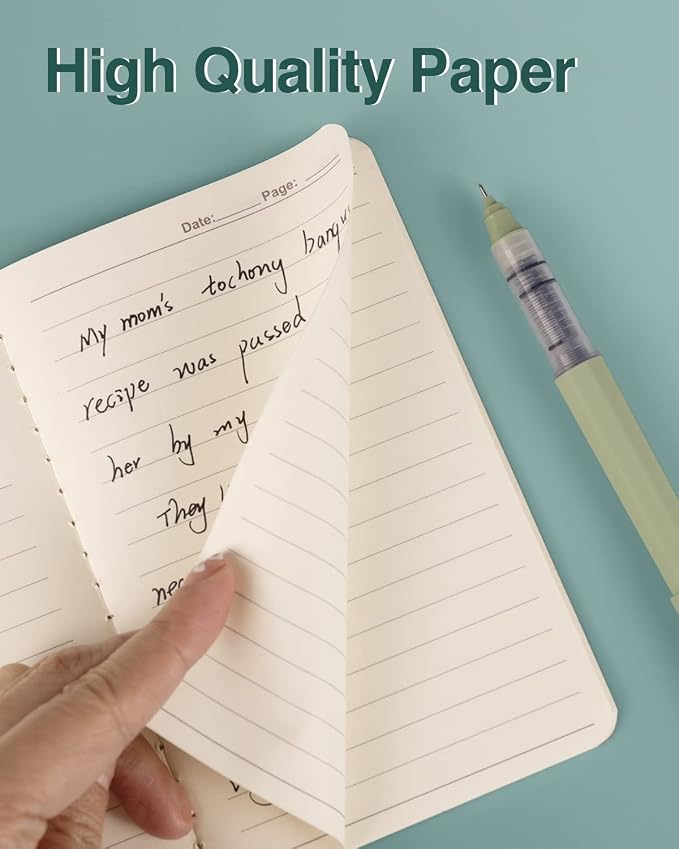 High Quality Paper
Date: Page:
My mom's tochony
recipe was passed
her by my
They